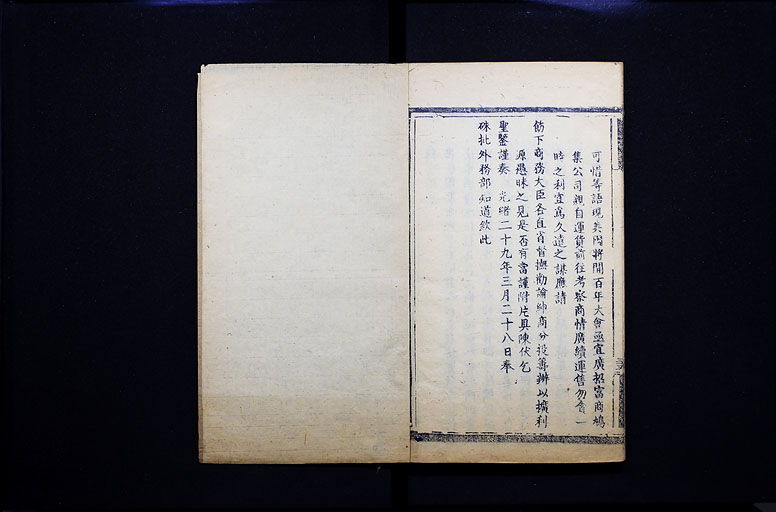 可惜等語現美國將開百年大會亟宜廣招富商鳩
集公司親自運貨前往考察商情廣續運售勿貪一
時之利宜為久遠之謀應請
飭下商務大臣各直省督撫勸諭紳商分投籌辦以擴利
源愚昧之見是否有當謹附片具陳伏乞
聖鑒謹奏 光緒二十九年三月二十八日奉
硃批外務部知道欽此